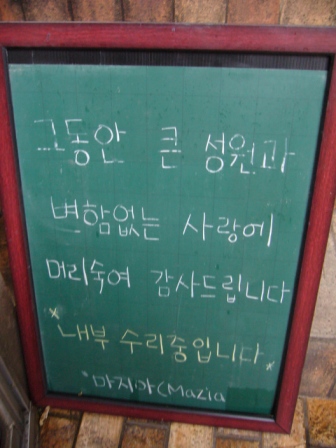 그동안 큰 성원과
변함없는 사랑에
머리숙여 감사드립니다
* 내부 수리중입니다 *
*마지아(Mazia